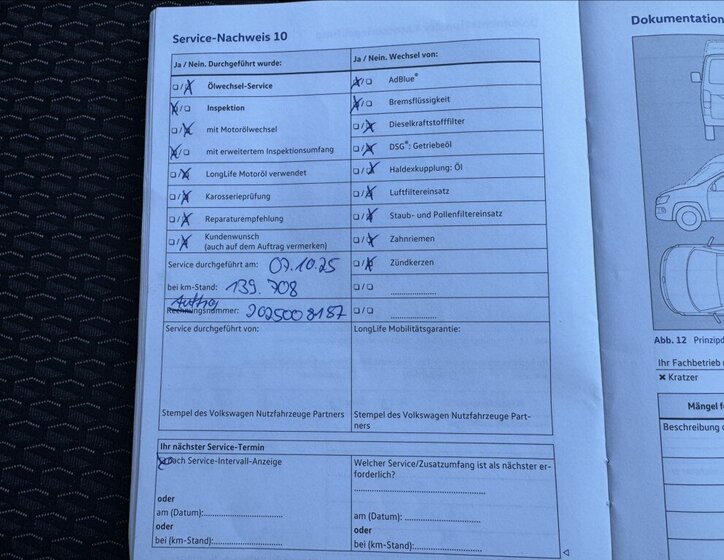 Service-Nachweis 10
Ja / Nein. Durchgeführt wurde:
Ölwechsel-Service
Inspektion
mit Motorölwechsel
mit erweitertem Inspektionsumfang
LongLife Motoröl verwendet
Karosserieprüfung
Reparaturempfehlung
Kundenwunsch
(auch auf dem Auftrag vermerken)
Service durchgeführt am: 07.10.25
bei km-Stand: 139.708
Auftrag
Rechnungsnummer: 2025008187
Service durchgeführt von:
Stempel des Volkswagen Nutzfahrzeuge Partners
Ja / Nein. Wechsel von:
AdBlue®
Bremsflüssigkeit
Dieselkraftstofffilter
DSG®: Getriebeöl
Haldexkupplung: Öl
Luftfiltereinsatz
Staub- und Pollenfiltereinsatz
Zahnriemen
Zündkerzen
LongLife Mobilitätsgarantie:
Stempel des Volkswagen Nutzfahrzeuge Part-
ners
Ihr nächster Service-Termin
nach Service-Intervall-Anzeige
oder
am (Datum):
oder
bei (km-Stand):
Welcher Service/Zusatzumfang ist als nächster er-
forderlich?
am (Datum):
oder
bei (km-Stand):
Dokumentation
Abb. 12 Prinzipd
Ihr Fachbetrieb
× Kratzer
Mängel
Beschreibung